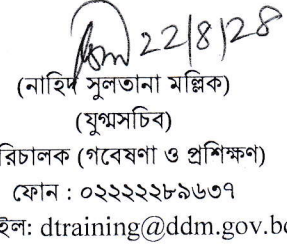 22/8/28
(নাহিদ সুলতানা মল্লিক)
(যুগ্মসচিব)
রিচালক (গবেষণা ও প্রশিক্ষণ)
ফোন : ০২২২২২৮৯৬৩৭
ইল: dtraining@ddm.gov.bd